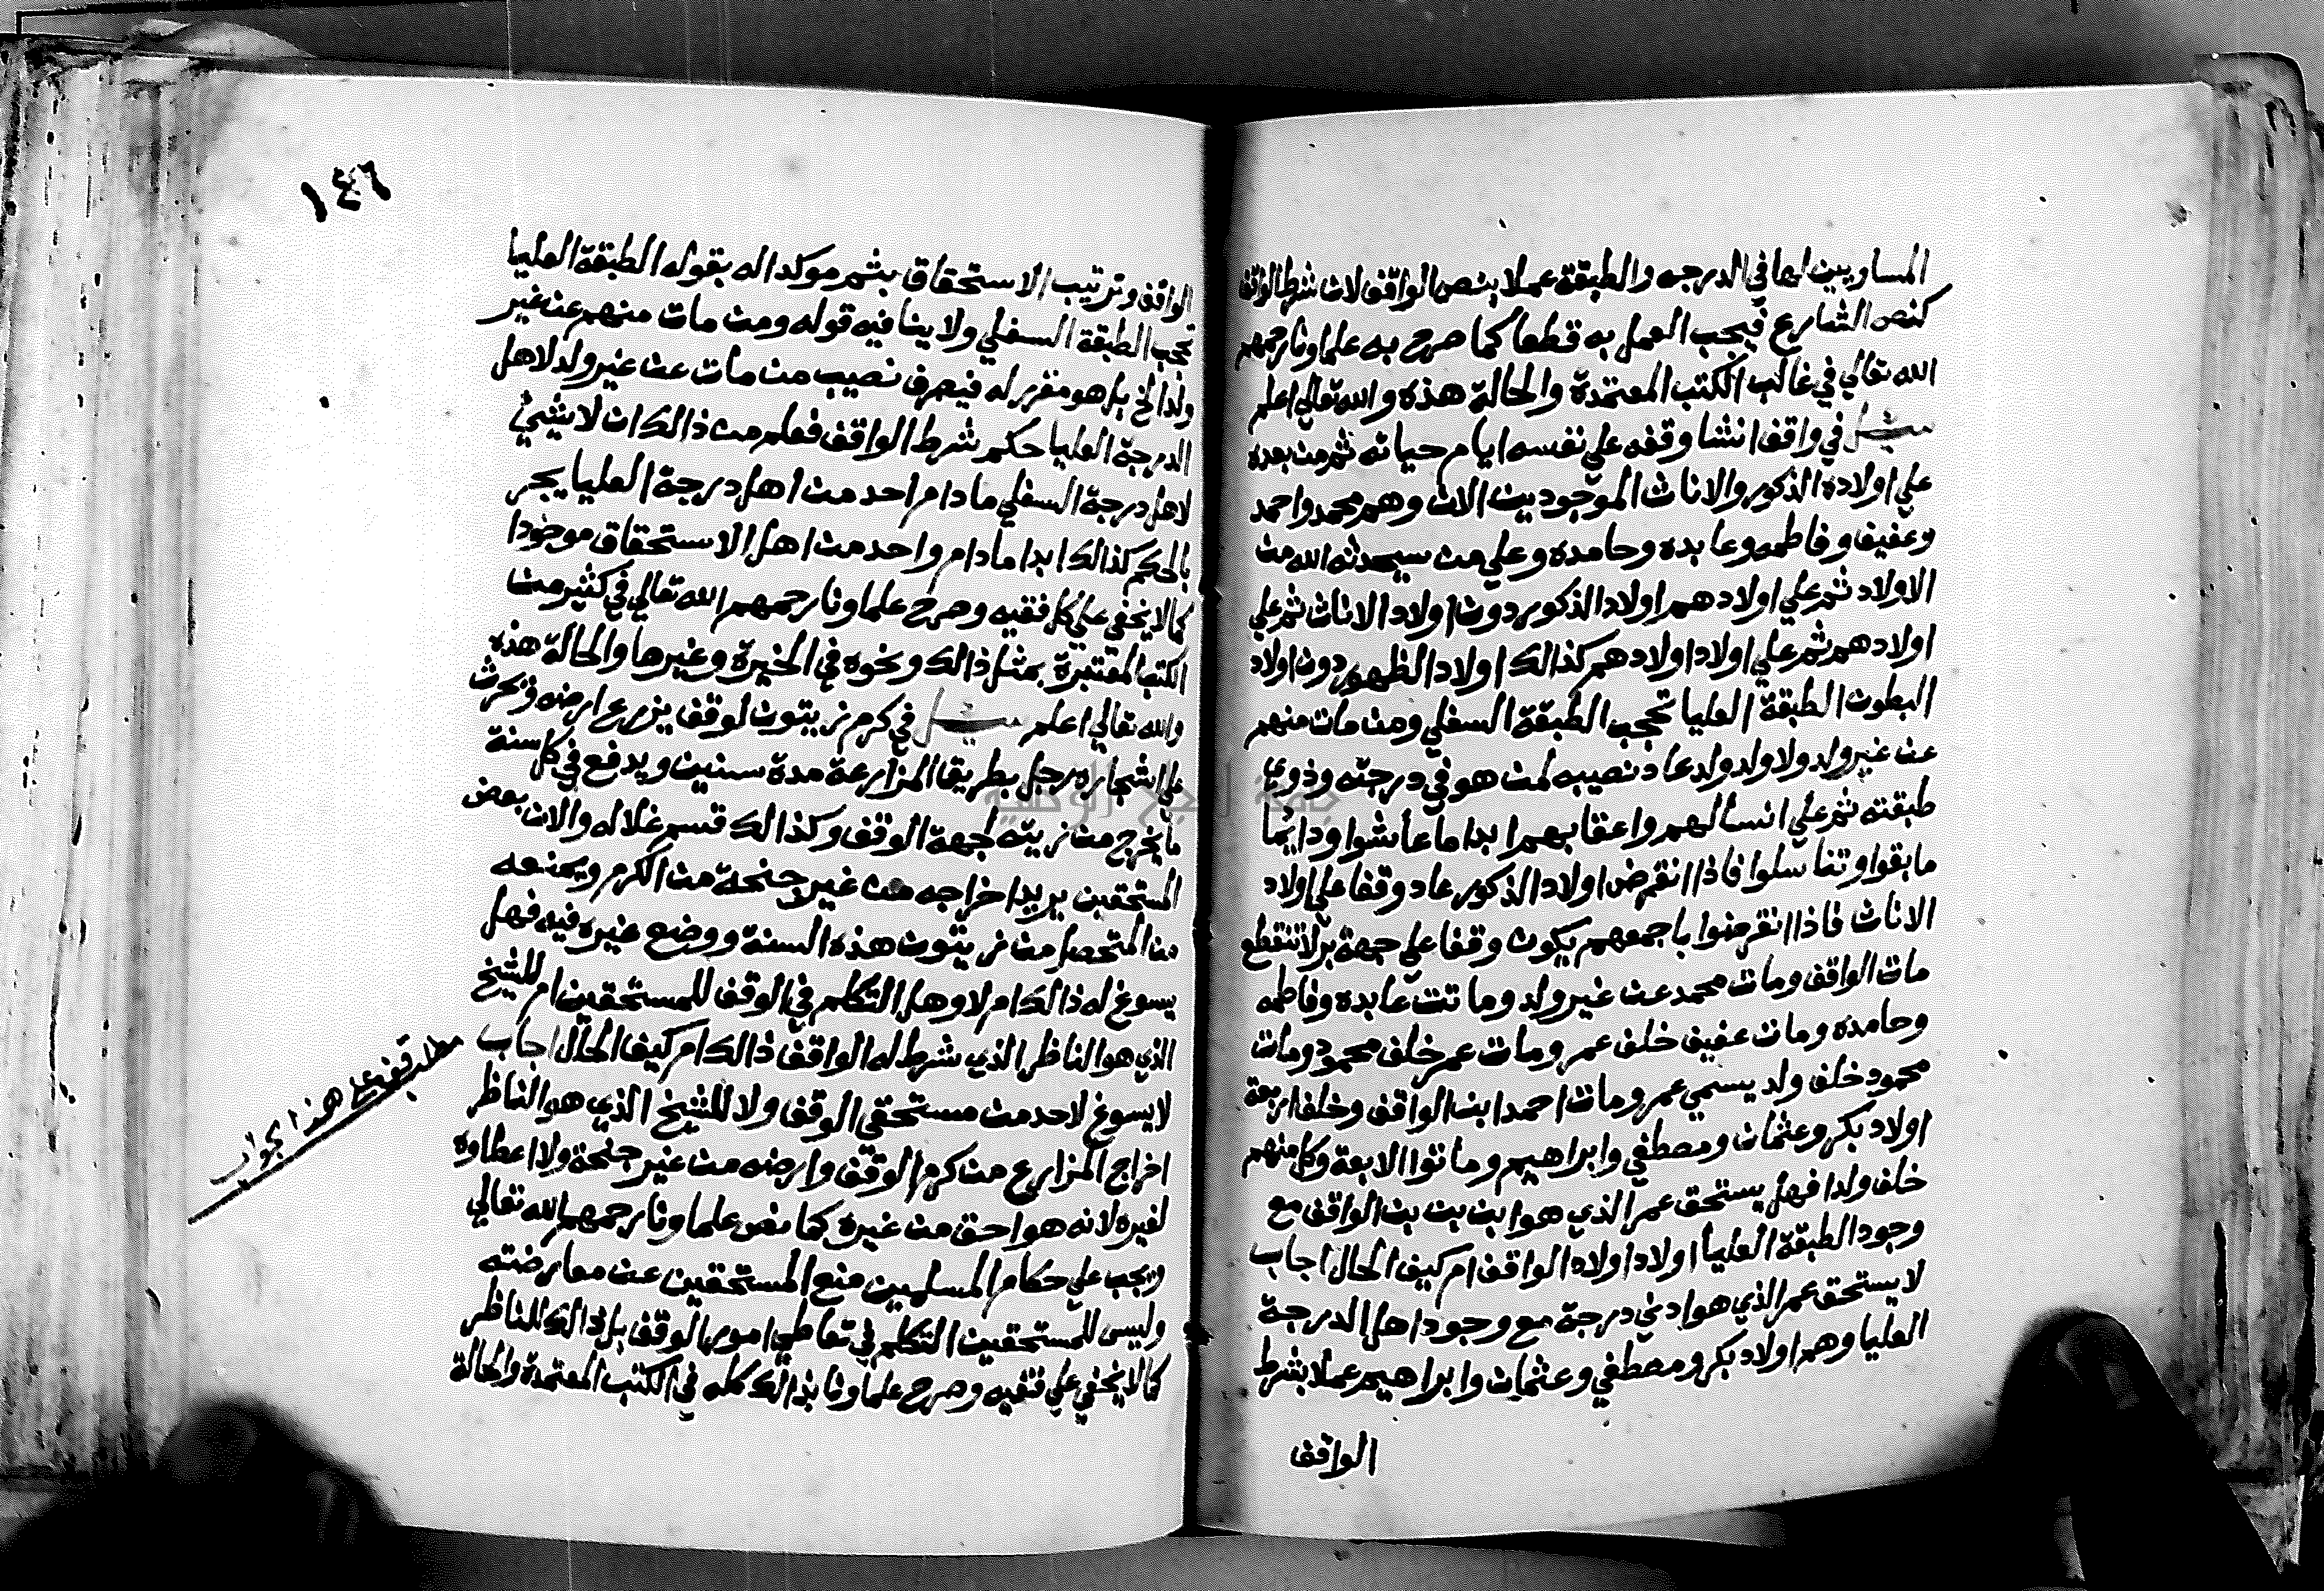 المساويين لها في الدرجه والطبقة عملا بنص الواقف لان شرط الواقف
كنص الشارع فيجب العمل به قطعا كما صرح به علماونا رحمهم
الله تعالي في غالب الكتب المعتمدة والحالة هذه والله تعالي اعلم
سئل في واقف انشا وقفه علي نفسه ايام حياته ثم من بعده
علي اولاده الذكور والاناث الموجودين الان وهم محمد واحمد
وعفيف وفاطمه وعابده وحامده وعلي من سيحدثه الله من
الاولاد ثم علي اولادهم اولاد الذكور دون اولاد الاناث ثم علي
اولادهم ثم علي اولاد اولادهم كذالك اولاد الظهور دون اولاد
البطون الطبقة العليا تحجب الطبقة السفلي ومن مات منهم
عن غير ولد ولا ولد ولد عاد نصيبه لمن هو في درجته وذوي
طبقته ثم علي انسالهم واعقابهم ابدا ما عاشوا ودايما
ما بقوا وتناسلوا فاذا انقرض اولاد الذكور عاد وقفا علي اولاد
الاناث فاذا انقرضوا باجمعهم يكون وقفا علي جهة بر لا تنقطع
مات الواقف ومات محمد عن غير ولد وماتت عابده وفاطمه
وحامده ومات عفيف خلف عمر ومات عمر خلف محمود ومات
محمود خلف ولد يسمي عمر ومات احمد ابن الواقف وخلف اربعة
اولاد بكر وعثمان ومصطفي وابراهيم وماتوا الابعة وكل منهم
خلف ولدا فهل يستحق عمر الذي هو ابن بن بن الواقف مع
وجود الطبقة العليا اولاد اولاد الواقف ام كيف الحال اجاب
لا يستحق عمر الذي هو ادني درجة مع وجود اهل الدرجة
العليا وهم اولاد بكر ومصطفي وعثمان وابراهيم عملا بشرط
الواقف
١٤٦
الواقف وترتيب الاستحقاق بثم موكدا له بقوله الطبقة العليا
تحجب الطبقة السفلي ولا ينافيه قوله ومن مات منهم عن غير
ولد الخ بل هو مقرر له فيصرف نصيب من مات عن غير ولد لاهل
الدرجة العليا حكم شرط الواقف فعلم من ذالك ان لا شيئ
لاهل درجة السفلي ما دام احد من اهل درجة العليا يجر
بالحكم كذالك ابدا ما دام واحد من اهل الاستحقاق موجودا
كما لا يخفي علي كل فقيه وصرح علماونا رحمهم الله تعالي في كثير من
الكتب المعتبرة بمثل ذالك ونحوه في الخيرة وغيرها والحالة هذه
والله تعالي اعلم سئل في كرم زيتون لوقف يزرع ارضه وتحرث
علي اشجاره رجل بطريق المزارعة مدة سنين ويدفع في كل سنة
ما يخرج من زيته لجهة الوقف وكذالك قسم غلاله والان بعض
المستحقين يريد اخراجه من غير جنحة من الكرم ويمنعه
من المتحصل من زيتون هذه السنة ووضع غيره فيه فهل
يسوغ له ذالك ام لا وهل التكلم في الوقف للمستحقين ام للشيخ
الذي هو الناظر الذي شرط له الواقف ذالك ام كيف الحال اجاب
لا يسوغ لاحد من مستحقي الوقف ولا للشيخ الذي هو الناظر
اخراج المزارع من كرم الوقف وارضه من غير جنحة ولا اعطاوه
لغيره لانه هو احق من غيره كما نص علماونا رحمهم الله تعالي
ويجب علي حكام المسلمين منع المستحقين عن معارضته
وليس للمستحقين التكلم في تعاطي امور الوقف بل ذالك للناظر
كما لا يخفي علي فقيه وصرح علماونا بذالك كله في الكتب المعتمدة والحالة
مطلب قف علي هذا الجواب